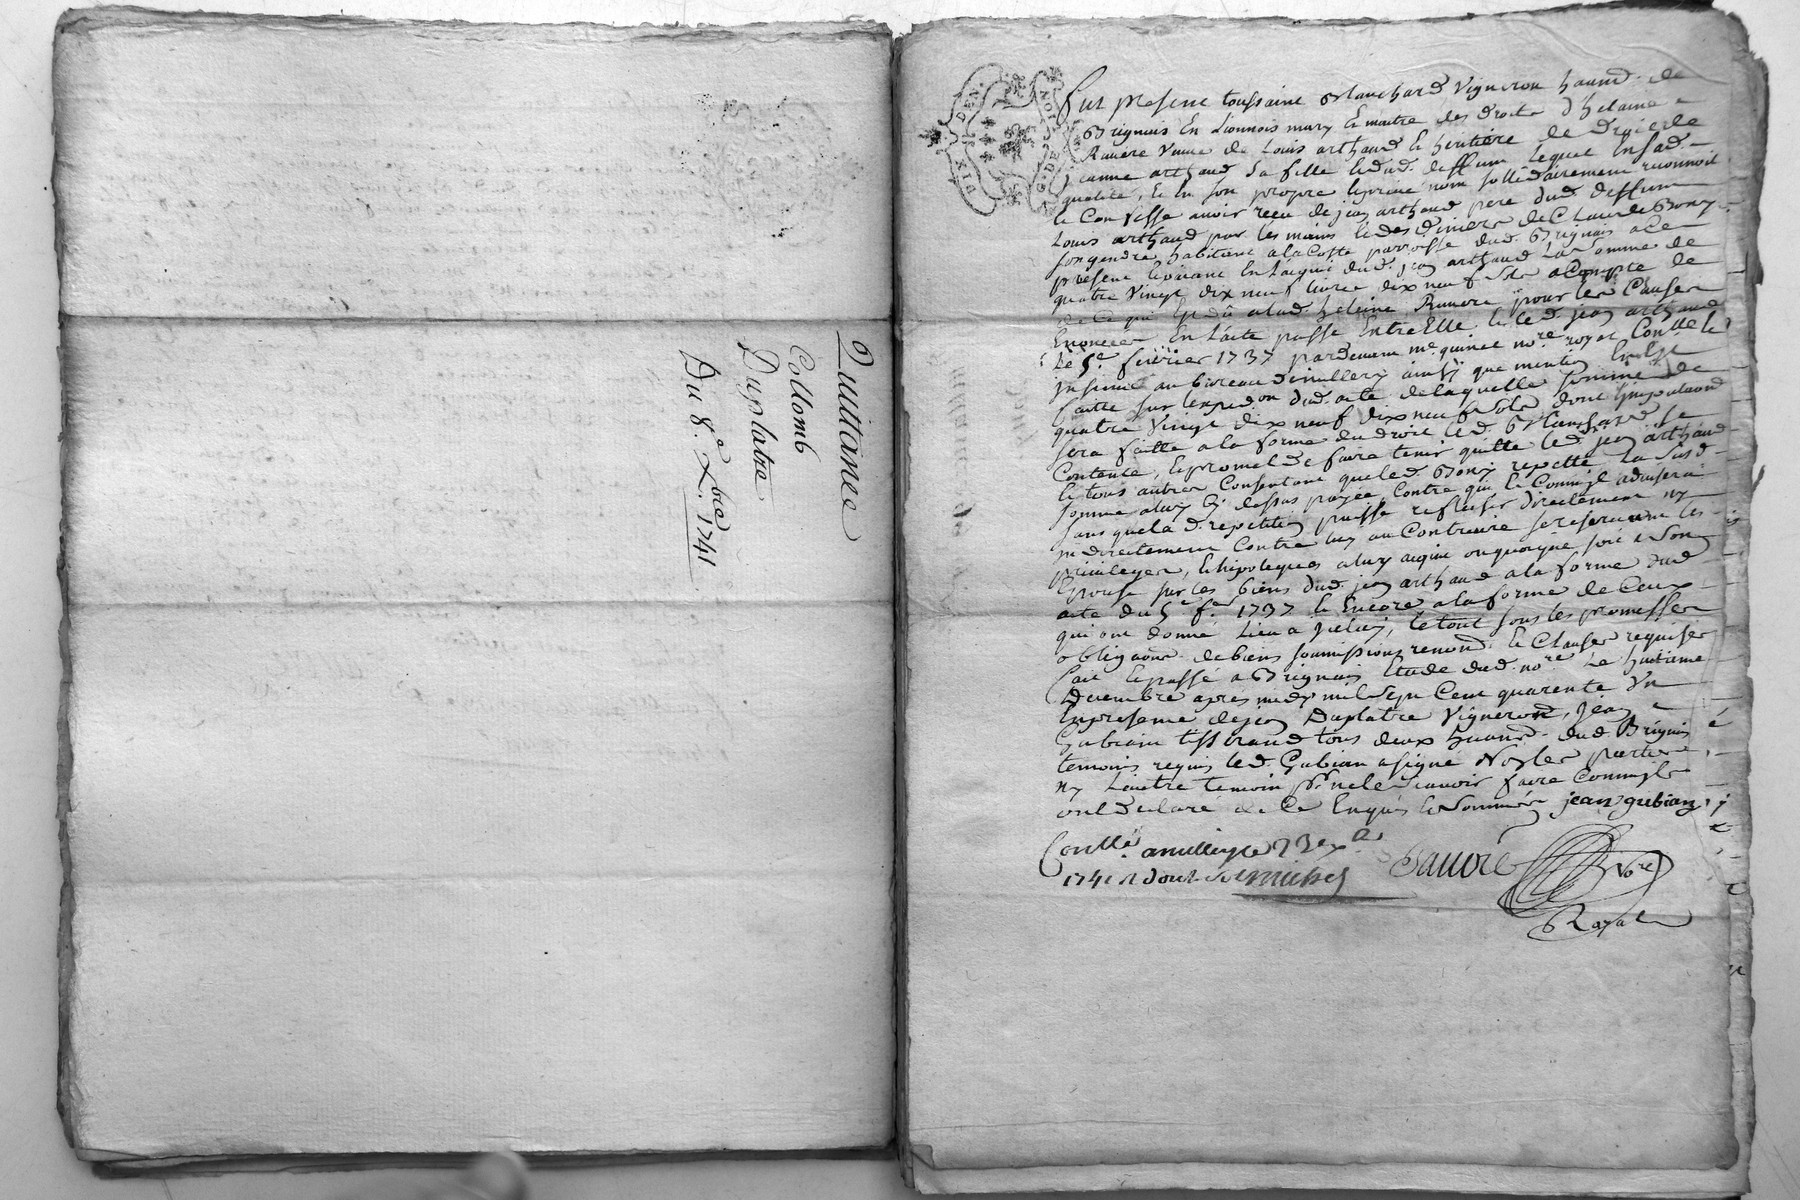 Quittance
Collomb
Duplatre
Du 8.e Xbre 1741
DIX DEN.
G. DE LYON
Fut présent toussaint Blanchard Vigneron habitt. de
Brignais En Lionnois mary Et maitre des droits d'helaine
Riviere Veuve de Louis arthaud Et héritière de droit de
jeanne arthaud sa fille Et dud. deffunt Lequel En sad.
qualité, Et En son propre Et privé nom sollidairement reconnoit
Et Confesse avoir reçu de jean arthaud père dud. deffunt
Louis arthaud par les mains Et des deniers de Claude Bony
son gendre habitant a la Coste parroisse dud. Brignais a ce
présent Et payant En l'acquit dud. jean arthaud La Somme de
quatre Vingt dix neuf livres dix neuf sols a Compte de
de Ce qui Est dû a lad. heleine Riviere pour les Causes
Enoncées En L'acte passé Entre Elle Et led. jean arthaud
Le 5.e février 1737 pardevant me quinet nore royal Conllé Et
insinué au bureau de millery ainsy que mention En Est
faitte sur l'expedon dud. acte de laquelle somme de
quatre Vingt dix neuf dix neuf sols dont l'imputaon
sera faitte a la forme du droit led. Blanchard se
Contente, Et promet de faire tenir quitte led. jean arthaud
Et tous autres Consentant que led. Bony repette La susd.
somme a luy Cy dessus payée, Contre qui Et Comme il advisera
sans que lad. repetition puisse refleser directement ny
indirectement Contre luy au Contraire se reservant les
privileges, Et hipoteques a luy acquis ou quoyque soit a Son
Epouse sur les biens dud. jean arthaud a la forme dud.
acte du 5.e fer 1737 Et Encore a la forme de Ceux
qui ont donné Lieu a Jceluy, Le tout sous les promesses
obligaons de biens soumissions renond. Et Clauses requises
fait Et passé a Brignais Etude dud. nore Le huitieme
Decembre après midy mil sept Cent quarante Un
En presence de jean Duplatre Vigneron, Jean
Gubian tisserand tous deux habitts. dud. Brignais
temoins requis led. Gubian a signé Non les parties
ny L'autre temoin pr ne le Scavoir faire Comme ils
ont declaré de Ce Enquis Et Sommés jean gubian
Conllé a millery le
1741 R douze sols
nore
Royal